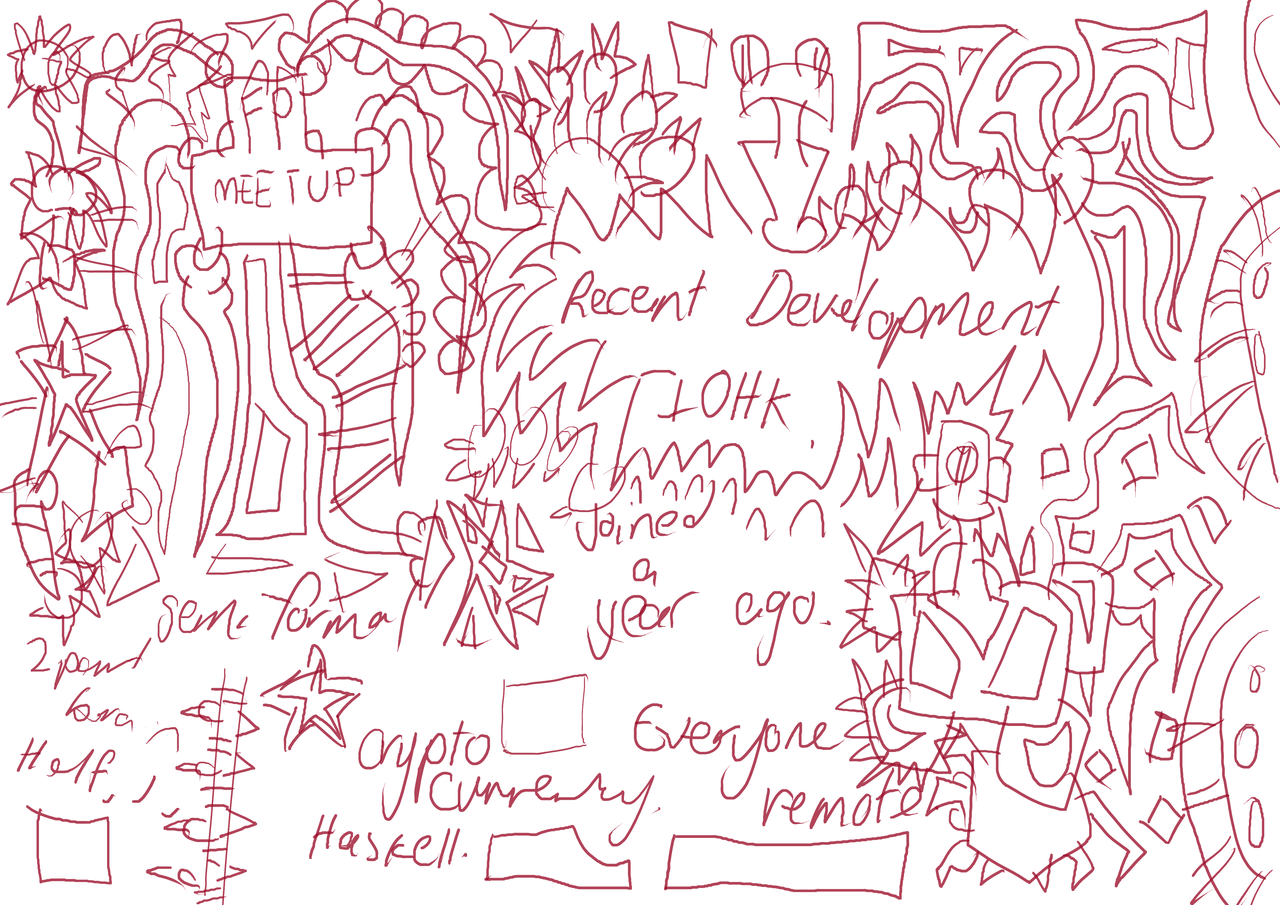 FP
MEETUP
Recent Development
IOHK
Joined
a
year ago.
Semi formal
2
Half
Crypto
Currency.
Haskell.
Everyone
remote